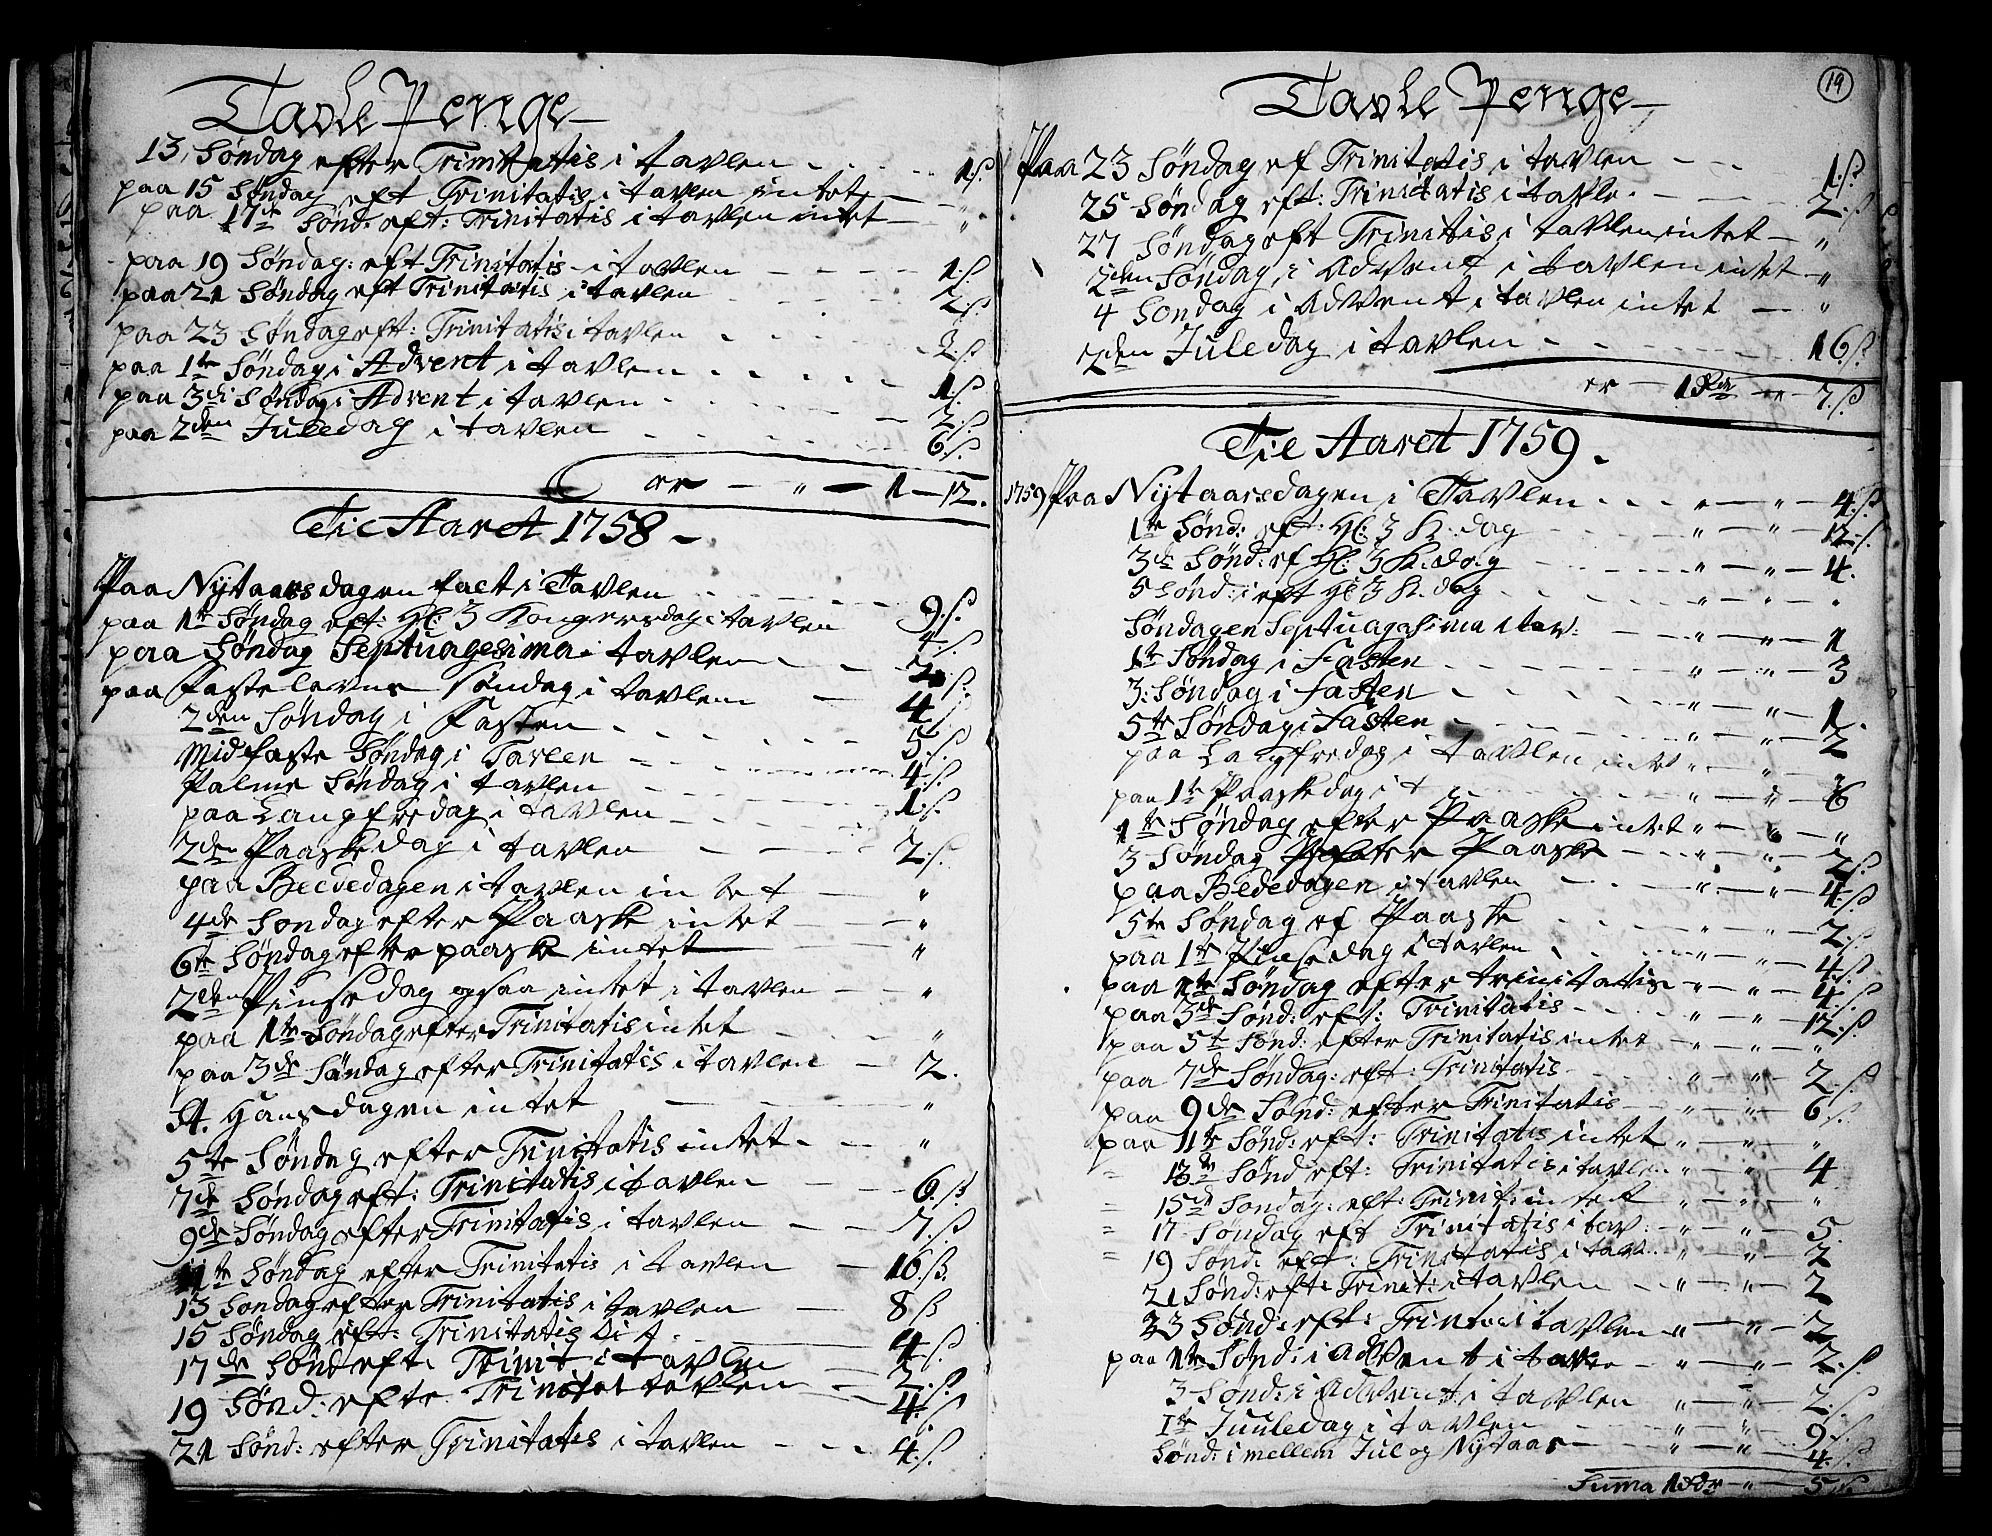 Tavle Penge
13 Søndag efter Trinitatis i tavlen 1 ß
paa 15 Søndag eft Trinitatis i tavlen intet "
paa 17de Sønd: eft: Trinitatis i tavlen intet "
paa 19 Søndag: eft Trinitatis i tavlen 1 ß
paa 21 Søndag eft Trinitatis i tavlen 2 ß
paa 23 Søndag eft: Trinitatis i tavlen 2 ß
paa 1te Søndag i Advent i tavlen 1 ß
paa 3di Søndag i Advent i tavlen 2 ß
paa 2den Juledag i tavlen 6 ß
er — " — 1 — 12.
Til Aaret 1758
Paa Nytaarsdagen falt i Tavlen 9 ß
paa 1te Søndag eft: Hl: 3 Kongersdag i tavlen 4 ß
paa Søndag Septuagesima i tavlen 2 ß
paa Fastelavns Søndag i tavlen 4 ß
2den Søndag i Fasten 5 ß
Midfaste Søndag i Tavlen 4 ß
Palme Søndag i tavlen 1 ß
paa Langfredag i tavlen
2den Paaskedag i tavlen 2 ß
paa Beededagen i tavlen intet "
4de Søndag efter Paaske intet "
6te Søndag efter paaske intet "
2den Pinsedag ogsaa intet i tavlen "
paa 1te Søndag efter Trinitatis intet "
paa 3de Søndag efter Trinitatis i tavlen 2.
St. Hansdagen intet "
5te Søndag efter Trinitatis intet "
7de Søndag eft: Trinitatis i tavlen 6 ß
9de Søndag efter Trinitatis i tavlen 7 ß
11te Søndag efter Trinitatis i tavlen 16 ß
13 Søndag efter Trinitatis i tavlen 8 ß
15 Søndag eft: Trinitatis i t. 4 ß
17de Sønd eft: Trinit i tavlen 2 ß
19 Sønd: efte Trinitat tavlen 4 ß
21 Sønd: efter Trinitatis i tavlen 4 ß
19
Tavle Penge
Paa 23 Søndag ef Trinitatis i tavlen 1 ß
25 Søndag eft: Trinitatis i tavle 2 ß
27 Søndag eft Trinitis i tavlen intet "
2den Søndag i Advent i tavlen intet "
4 Søndag i Advent i tavlen intet "
2den Juledag i tavlen 16 ß
er — 1 Rdr — 7 ß
Til Aaret 1759
1759 Paa Nytaarsdagen i Tavlen " " 4 ß
1te Sønd: eft: Hl: 3 K: dag " " 12 ß
3de Sønd: ef Hl: 3 K: dag " " 4.
5 Sønd: eft Hl 3 K. dag " " "
Søndagen Septuagesima i tav: " " 1
1te Søndag i Fasten " " 3
3: Søndag i fasten " " 1.
5te Søndag i Fasten " " 2
paa Langfredag i tavlen intet " " "
paa 1te Paaskedag i t " " 6
1te Søndag efter Paaske intet " " "
3 Søndag efter Paaske " " 2 ß
paa Bededagen i tavlen " " 4 ß
5te Søndag ef Paaske " " 2 ß
paa 1te Pinsedag i tavlen " " 4 ß
paa 1te Søndag efter trinitatis " " 4 ß
paa 3de Sønd: eft: Trinitatis " " 12 ß
paa 5te Sønd: efter Trinitatis intet " " "
paa 7de Søndag: eft: Trinitatis " " 2 ß
paa 9de Sønd: efter Trinitatis " " 6 ß
paa 11te Sønd: eft: Trinitatis intet " " "
= 13de Sønd eft: Trinitatis i tavlen " " 4
= 15d Søndag: eft: Trinit: intet " " "
= 17 Søndag eft Trinitatis i tav: " " 5
= 19 Sønd: eft: Trinitatis i tavl. " " 2
21 Sønd: eft: Trinit: i tavlen " " 2
23 Sønd: eft: Trinitat i tavlen " " 2
paa 1te Sønd: i advent i tavle " " 2 ß
3 Sønd: i Advent i tavlen " " 2 ß
1te Juuledag i tavlen " " 9 ß
Sønd: imellem Jul og Nytaar " " 4 ß
Suma 1 Rdr " 5 ß